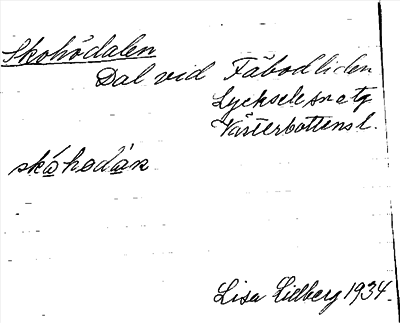 Skohödalen
Dal vid Fäbodliden
Lycksele sn etg
Västerbottens l.
skåhodán
Lisa Lidberg 1934.